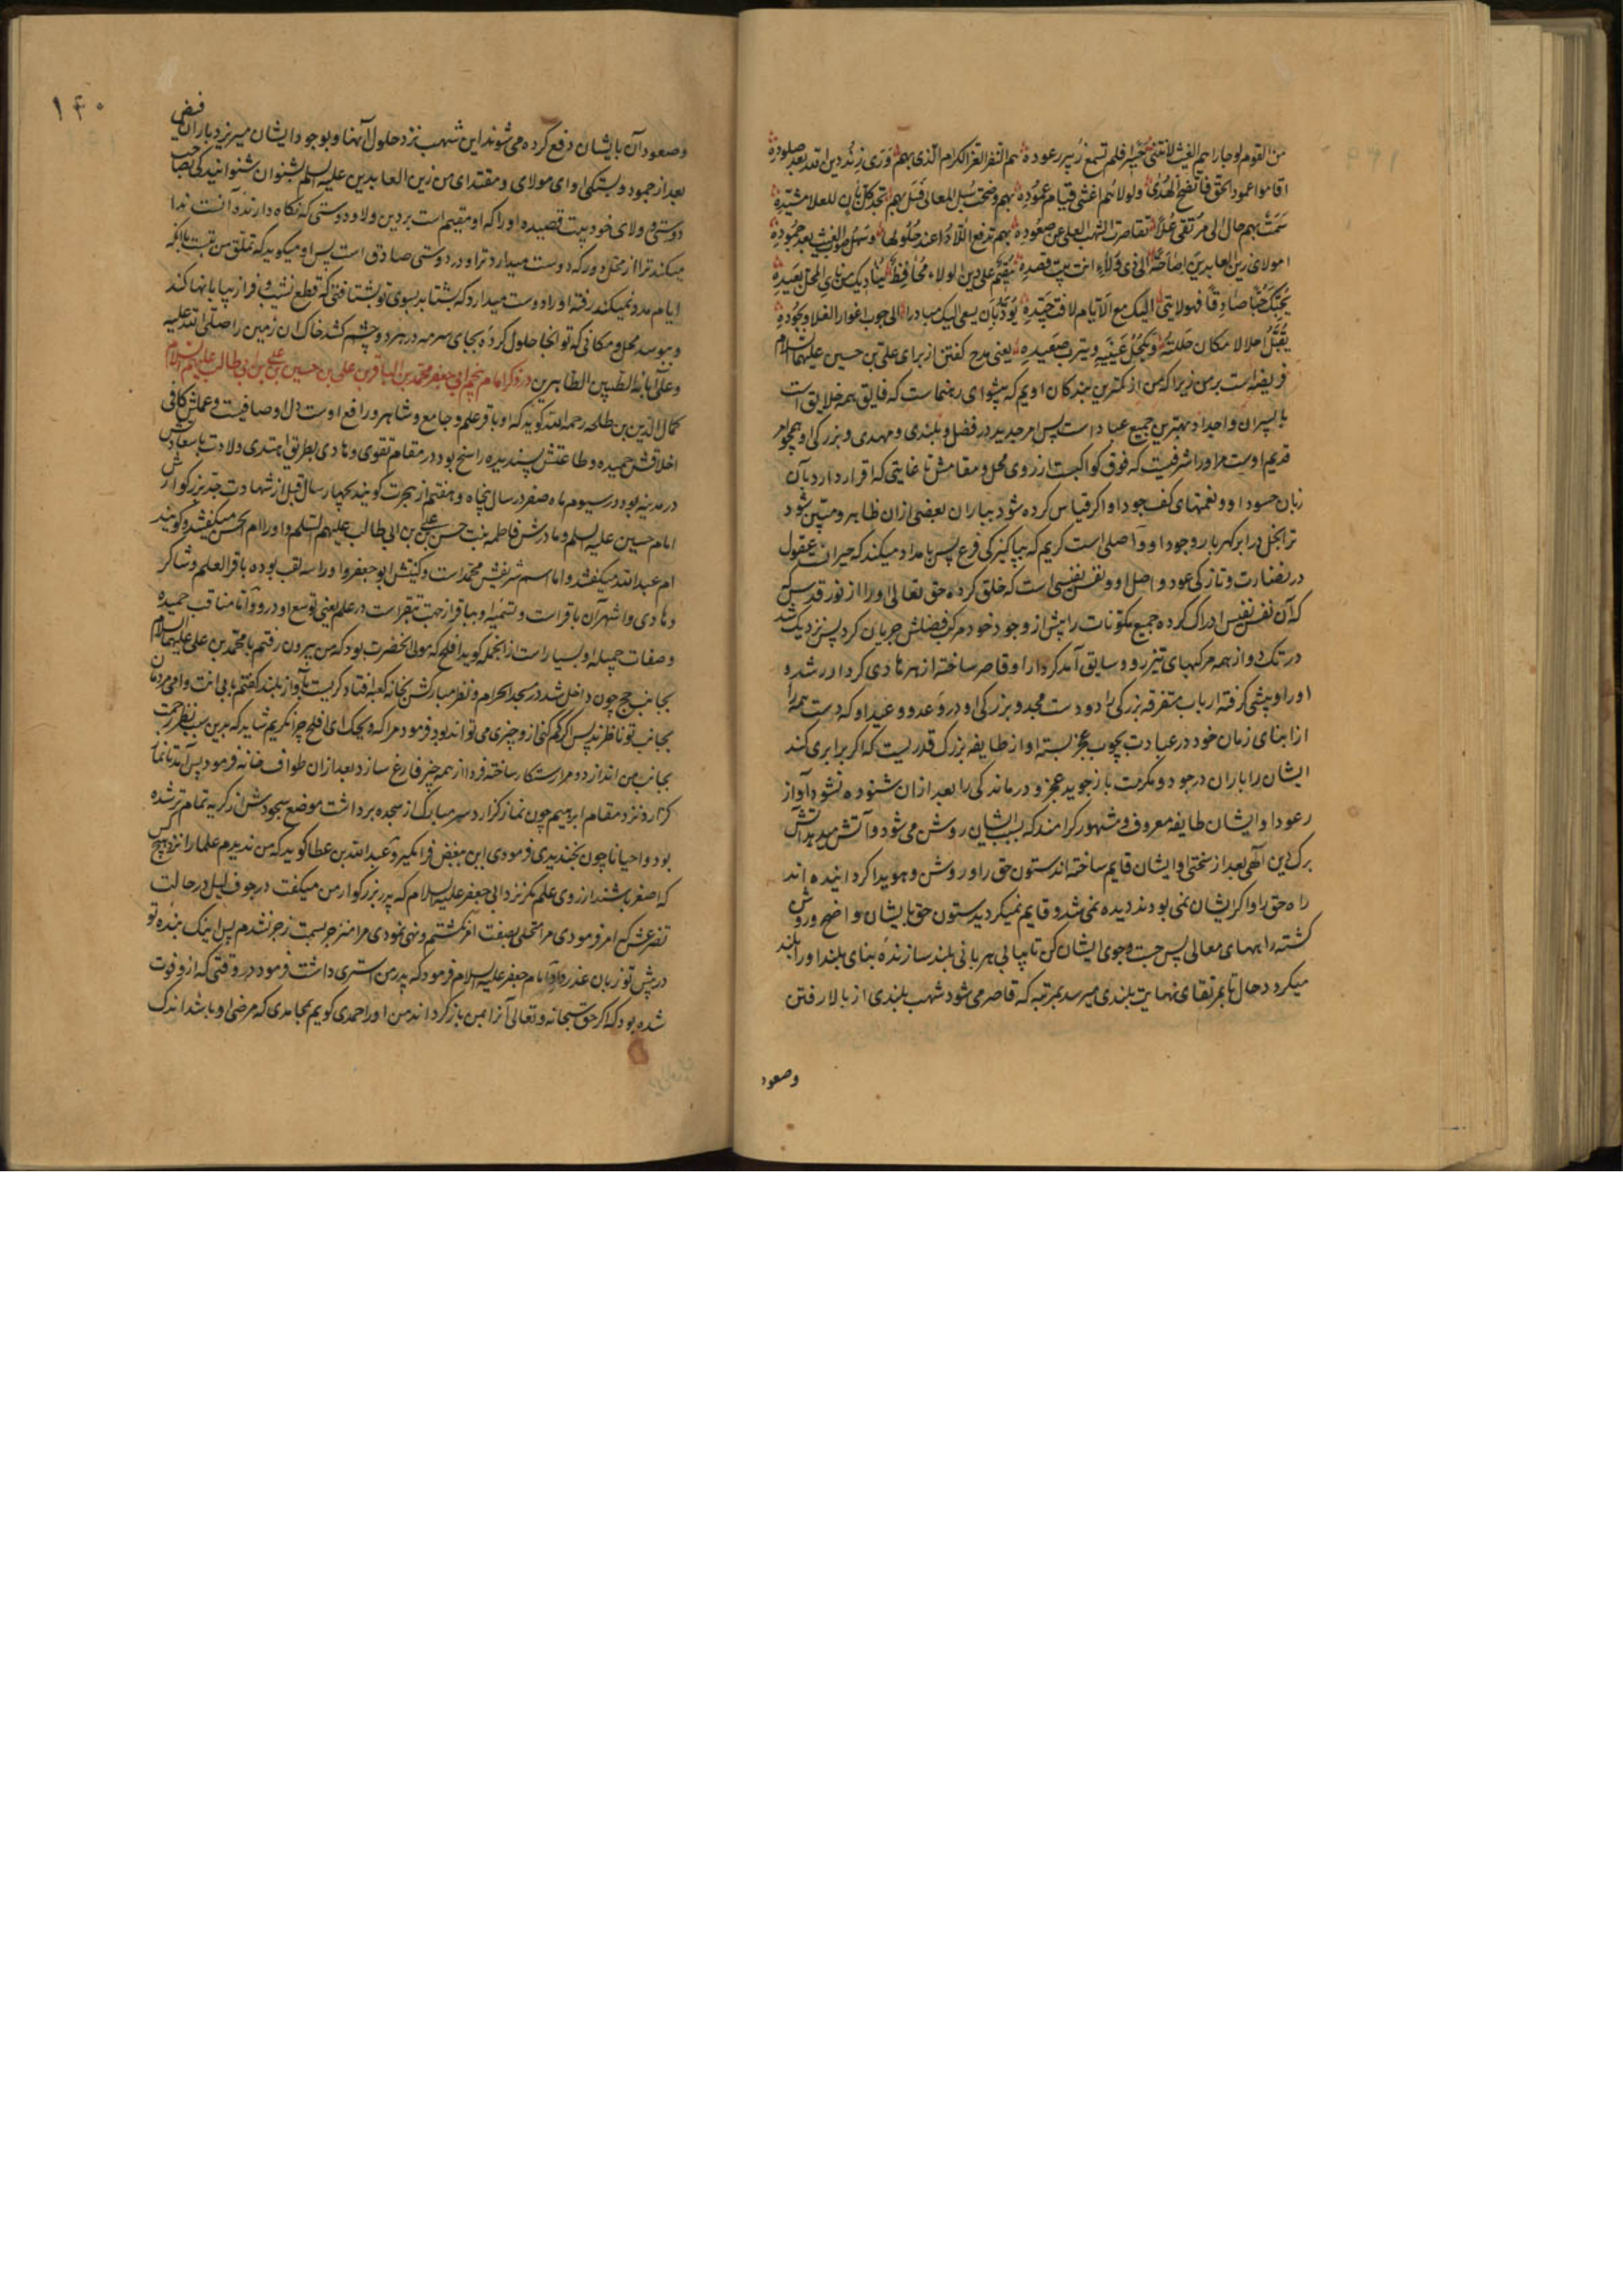 من القوم لو جاراهم الغیث لانثنی حسیرا فلم تسمع زئیر رعوده هم النفر الغر الکرام الذی بهم وری زند دین الله بعد صلوده
اقاموا عمود الحق فاتضح الهدی ولولاهم اغشی قیام عموده بهم وضحت سبل المعالی فسل بهم تجد کل بان للعلا مشیده
سمت بهم حال الی مرتقی علا تقاصرت الشهب العلی عن صعوده بهم تدفع اللاوا عند حلولها وسهل صوب الغیث بعد جموده
امولای زین العابدین اصاخة الی ذی ولاء انت بیت قصیده مقیم علی دین الولاء محافظ ینادیک من نای المحل بعیده
یحبک حبا صادقا فهو لا ینی الیک مع الایام لافت جیده یود بان یسعی الیک مبادرا الی جوب اغوار الفلا ونجوده
یقبل اجلالا مکان حللته ویکحل عینیه بترب صعیده یعنی مدح گفتن از برای علی بن حسین علیهما السلام
فریضه است بر من زیرا که من از کمترین بندگان اویم که پیشوای رهنماست که فایق همه خلایق است
با پسران و اجداد بهترین جمیع عباد است پس امر جدید در فضل و بلندی و مهدی و بزرگی او همچو امر
قدیم اوست مر او را شرفیست که فوق کواکبست از روی محل و مقامش تا غایتی که اقرار دارد بآن
زبان حسود او و نعمتهای کف جود او اگر قیاس کرده شود بباران بعضی از ان ظاهر و مبین شود
ترا بخل در ابر گهربار وجود او و اصلی است کریم که بپاکیزگی فرع پس بامداد میکند که حیرانست عقول
در نضارت و تازگی عود و اصل او و نفس نفیسی است که خلق کرده حق تعالی او را از نور قدس که
که آن نفس نفیس ادراک کرده جمیع مکونات را پیش از وجود خود مرکب فضلش جریان کرد پس نزدیک شد
در تک و از همه مرکبهای تیزرو و سابق آمد کردار او قاصر ساخته از هر هادی کردار رشد و
او را و پیشی گرفته ارباب متفرقه بزرگی را دو دست مجد و بزرگی او در وعد و وعید او که دست همه را
از ابنای زمان خود در عبادت بچوب عجز بسته او از طایفه بزرگ قدریست که اگر برابری کند
ایشان را باران در جود و مکرمت باز جوید عجز و درماندگی را بعد از ان شنوده نشود آواز
رعود او ایشان طایفه معروف و مشهور کرامند که بسبب ایشان روشن می شود و آتش میدهد آتش
برگ دین الهی بعد از سختی او ایشان قایم ساخته اند ستون حق را و روشن و هویدا گردانیده اند
راه حق را و اگر ایشان نمی بودند دیده نمی شد و قایم نمیگردید ستون حق بایشان واضح و روشن
گشته راههای معالی پس جست وجوی ایشان کن تا بیابی هر بانی بلند سازنده بنای بلند او را بلند
میگردد حال تا بمرتقای نهایت بلندی میرسد بمرتبه که قاصر می شود شهب بلندی از بالا رفتن
وصعود
۱۴۰
وصعود آن بایشان دفع کرده می شوند این شهب نزد حلول آنها و بوجود ایشان میریزد باران فیض
بعد از جمود و بستگی او ای مولای و مقتدای من زین العابدین علیه السلم بشنوان شنوانیدگی بصاحب
دوستی و ولای خود بیت قصیده او را که او مقیم است بر دین ولا و دوستی که نگاه دارنده آنست ندا
میکند ترا از محل دور که دوست میدارد ترا و در دوستی صادق است پس او میگوید که تعلق من تست با آنکه
ایام مدد نمیکند رفته او را دوست میدارد که بشتابد بسوی تو بشتافتنی که قطع نشیب و فراز بیابانها کند
و ببوسد محل و مکانی که تو انجا حلول کرده بجای سرمه در هر دو چشم کشد خاک ان زمین را صلی الله علیه
وعلی آبائه الطیبین الطاهرین در ذکر امام پنجم ابی جعفر محمد الباقر بن علی بن حسین بن علی بن ابی طالب علیهم السلام
کمال الدین بن طلحه رحمه الله گوید که او باقر علم و جامع و شاهر و رافع اوست دل او صافیست و عملش کافی
اخلاقش حمیده و طاعتش پسندیده راسخ بود در مقام تقوی و هادی بطریق اهتدی ولادت با سعادتش
در مدینه بود در سیوم ماه صفر در سال پنجاه و هفتم از هجرت گویند بچهار سال قبل از شهادت جد بزرگوارش
امام حسین علیه السلم و مادرش فاطمه بنت حسن بن علی بن ابی طالب علیهم السلم و او را ام الحسن میگفتند و گویند
ام عبد الله میگفتند و اما اسم شریفش محمد است و کنیتش ابو جعفر و او را سه لقب بوده باقر العلم و شاکر
و هادی و اشهر آن باقر است و تسمیه او بباقر از جهت تبقر است در علم یعنی توسع او در و و اما مناقب حمیده
و صفات جمیله او بسیار است از انجمله گوید افلح که مولی انحضرت بود که من بیرون رفتم با محمد بن علی علیهما السلام
بجانب حج چون داخل شد در مسجد الحرام و نظر مبارکش بخانه کعبه افتاد گریست بآواز بلند گفتم بابی انت و امی مردمان
بجانب تو ناظرند پس اگر کم کنی از و چیزی می تواند بود فرمود مرا که ویحک ای افلح چرا نگریم شاید که بدین سبب نظر رحمت
بجانب من اندازد و مرا رستگار ساخته فردا از همه چیز فارغ سازد بعد از ان طواف خانه فرمود پس آمد تا نماز
گزارد نزد مقام ابرهیم چون نماز گزارد سر مبارک از سجده برداشت موضع سجودش از گریه تمام تر شده
بود و احیانا چون بخندیدی فرمودی الهی مبغض فرا مگیر و عبد الله بن عطا گوید که من ندیدم علما را نزد هیچ کس
که اصغر باشند از روی علم مگر نزد ابی جعفر علیه السلام که پدر بزرگوار من میگفت در جوف لیل در حالت
تضرعش که امر فرمودی مرا متحلی بصفت ائتمر نگشتم و نهی نمودی مرا منزجر بسمت زجر نشدم پس اینک بنده تو
در پیش تو زبان عذر و امام جعفر علیه السلام فرمود که پدر من استری داشت فرمود در وقتی که ازو فوت
شده بود که اگر حق سبحانه و تعالی آنرا بمن باز گرداند من او را حمدی گویم بمحامدی که مرضی او باشد اندک